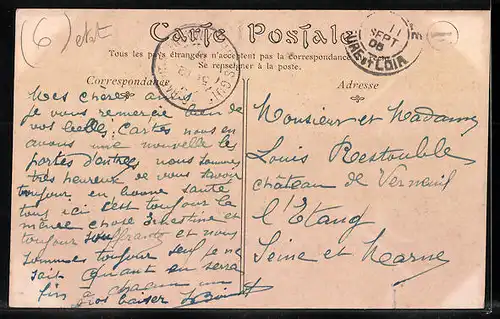 (6) etat
Carte Postale
Tous les pays étrangers n'acceptent pas la correspondance
Se renseigner à la poste.
Correspondance
Adresse
11
SEPT
08
EURE-ET-LOIR
Mes chère amis
je vous remercie bien de
vos belle Cartes nous en
avons une nouvelle le
portes d'antres nous sommes
très heureux de vous savoir
toujour en bonne santé
tous ici c'est toujour la
même chose Ernestine et
toujour souffrante et nous
sommes toujour seul je ne
sait quant en sera
fin a chacun un
gros baiser
Monsieur et Madame
Louis Restouble
château de Verneuil
l'Etang
Seine et Marne